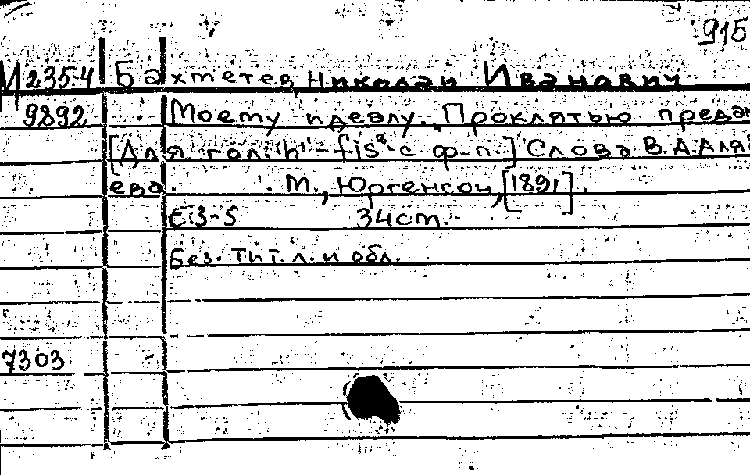 915
И 235.4 Бахметев, Николай Иванович
9892 Моему идеалу. "Проклятью предан
[Для гол. h'-fis² с ф-п.] Слова В.А.Аля-
ева. М., Юргенсон, [1891].
C.3-5 34 cm.
Без. тит. л. и обл.
7303